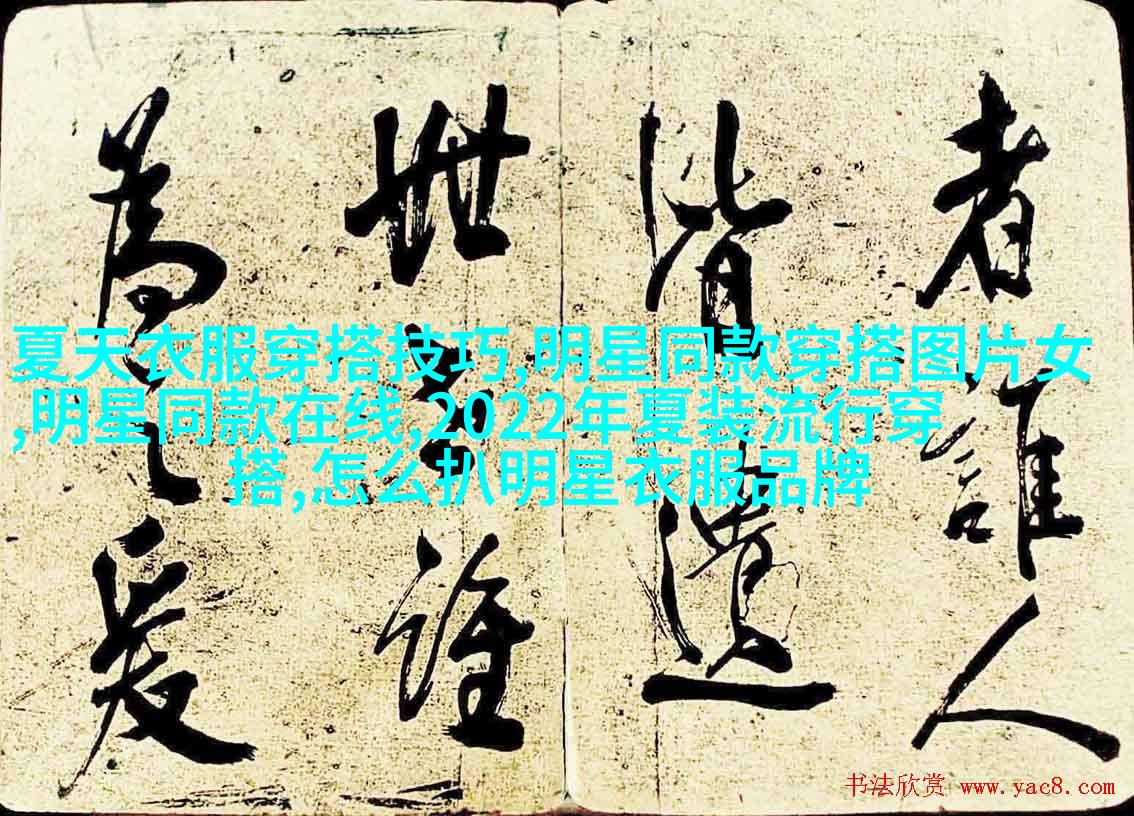 者誰人
皆遺
世誰
為之
夏天衣服穿搭技巧,明星同款穿搭图片女
,明星同款在线,2022年夏装流行穿
搭,怎么扒明星衣服品牌
书法欣赏 www.yac8.com